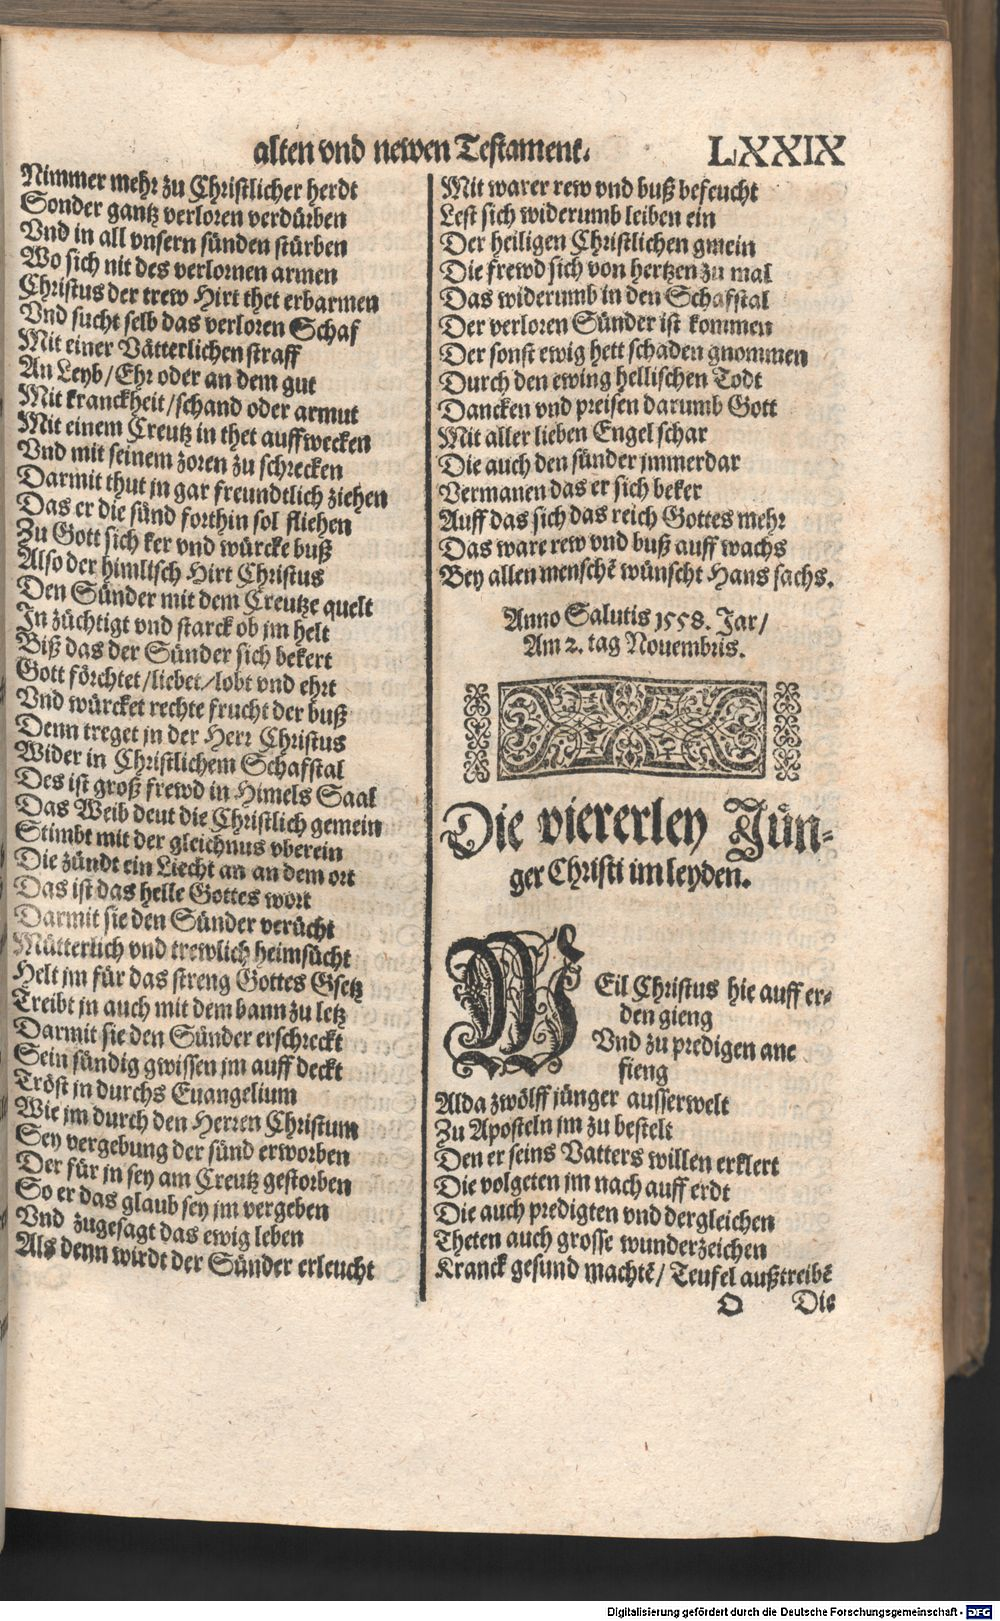 alten vnd newen Testament.
LXXIX
Nimmer mehr zu Christlicher herdt
Sonder gantz verloren verdürben
Vnd in all vnsern sünden stürben
Wo sich nit des verlornen armen
Christus der trew Hirt thet erbarmen
Vnd sucht selb das verloren Schaf
Mit einer Vätterlichen straff
An Leyb/Ehr oder an dem gut
Mit kranckheit/schand oder armut
Mit einem Creutz in thet auffwecken
Vnd mit seinem zoren zu schrecken
Darmit thut jn gar freundtlich ziehen
Das er die sünd forthin sol fliehen
Zu Gott sich ker vnd würcke buß
Also der himlisch Hirt Christus
Den Sünder mit dem Creutze quelt
In züchtigt vnd starck ob jm helt
Biß das der Sünder sich bekert
Gott förchtet/liebet/lobt vnd ehrt
Vnd würcket rechte frucht der buß
Denn treget jn der Herr Christus
Wider in Christlichem Schafstal
Des ist groß frewd in Himels Saal
Das Weib deut die Christlich gemein
Stimbt mit der gleichnus vberein
Die zündt ein Liecht an an dem ort
Das ist das helle Gottes wort
Darmit sie den Sünder verücht
Mütterlich vnd trewlich heimsücht
Helt jm für das streng Gottes Gsetz
Treibt jn auch mit dem bann zu letz
Darmit sie den Sünder erschreckt
Sein sündig gwissen jm auff deckt
Tröst jn durchs Euangelium
Wie jm durch den Herren Christum
Sey vergebung der sünd erworben
Der für jn sey am Creutz gestorben
So er das glaub sey jm vergeben
Vnd zugesagt das ewig leben
Als denn wirdt der Sünder erleucht
Mit warer rew vnd buß befeucht
Lest sich widerumb leiben ein
Der heiligen Christlichen gmein
Die frewd sich von hertzen zu mal
Das widerumb in den Schafstal
Der verloren Sünder ist kommen
Der sonst ewig hett schaden gnommen
Durch den ewing hellischen Todt
Dancken vnd preisen darumb Gott
Mit aller lieben Engel schar
Die auch den sünder jmmerdar
Vermanen das er sich beker
Auff das sich das reich Gottes mehr
Das ware rew vnd buß auff wachs
Bey allen menschē wünscht Hans sachs.
Anno Salutis 1558. Jar/
Am 2. tag Nouembris.
Die viererley Jün-
ger Christi im leyden.
WEil Christus hie auff er-
den gieng
Vnd zu predigen ane
fieng
Alda zwölff jünger ausserwelt
Zu Aposteln jm zu bestelt
Den er seins Vatters willen erklert
Die volgeten jm nach auff erdt
Die auch predigten vnd dergleichen
Theten auch grosse wunderzeichen
Kranck gesund machtē/ Teufel außtreibē
O
Die
Digitalisierung gefördert durch die Deutsche Forschungsgemeinschaft - DFG